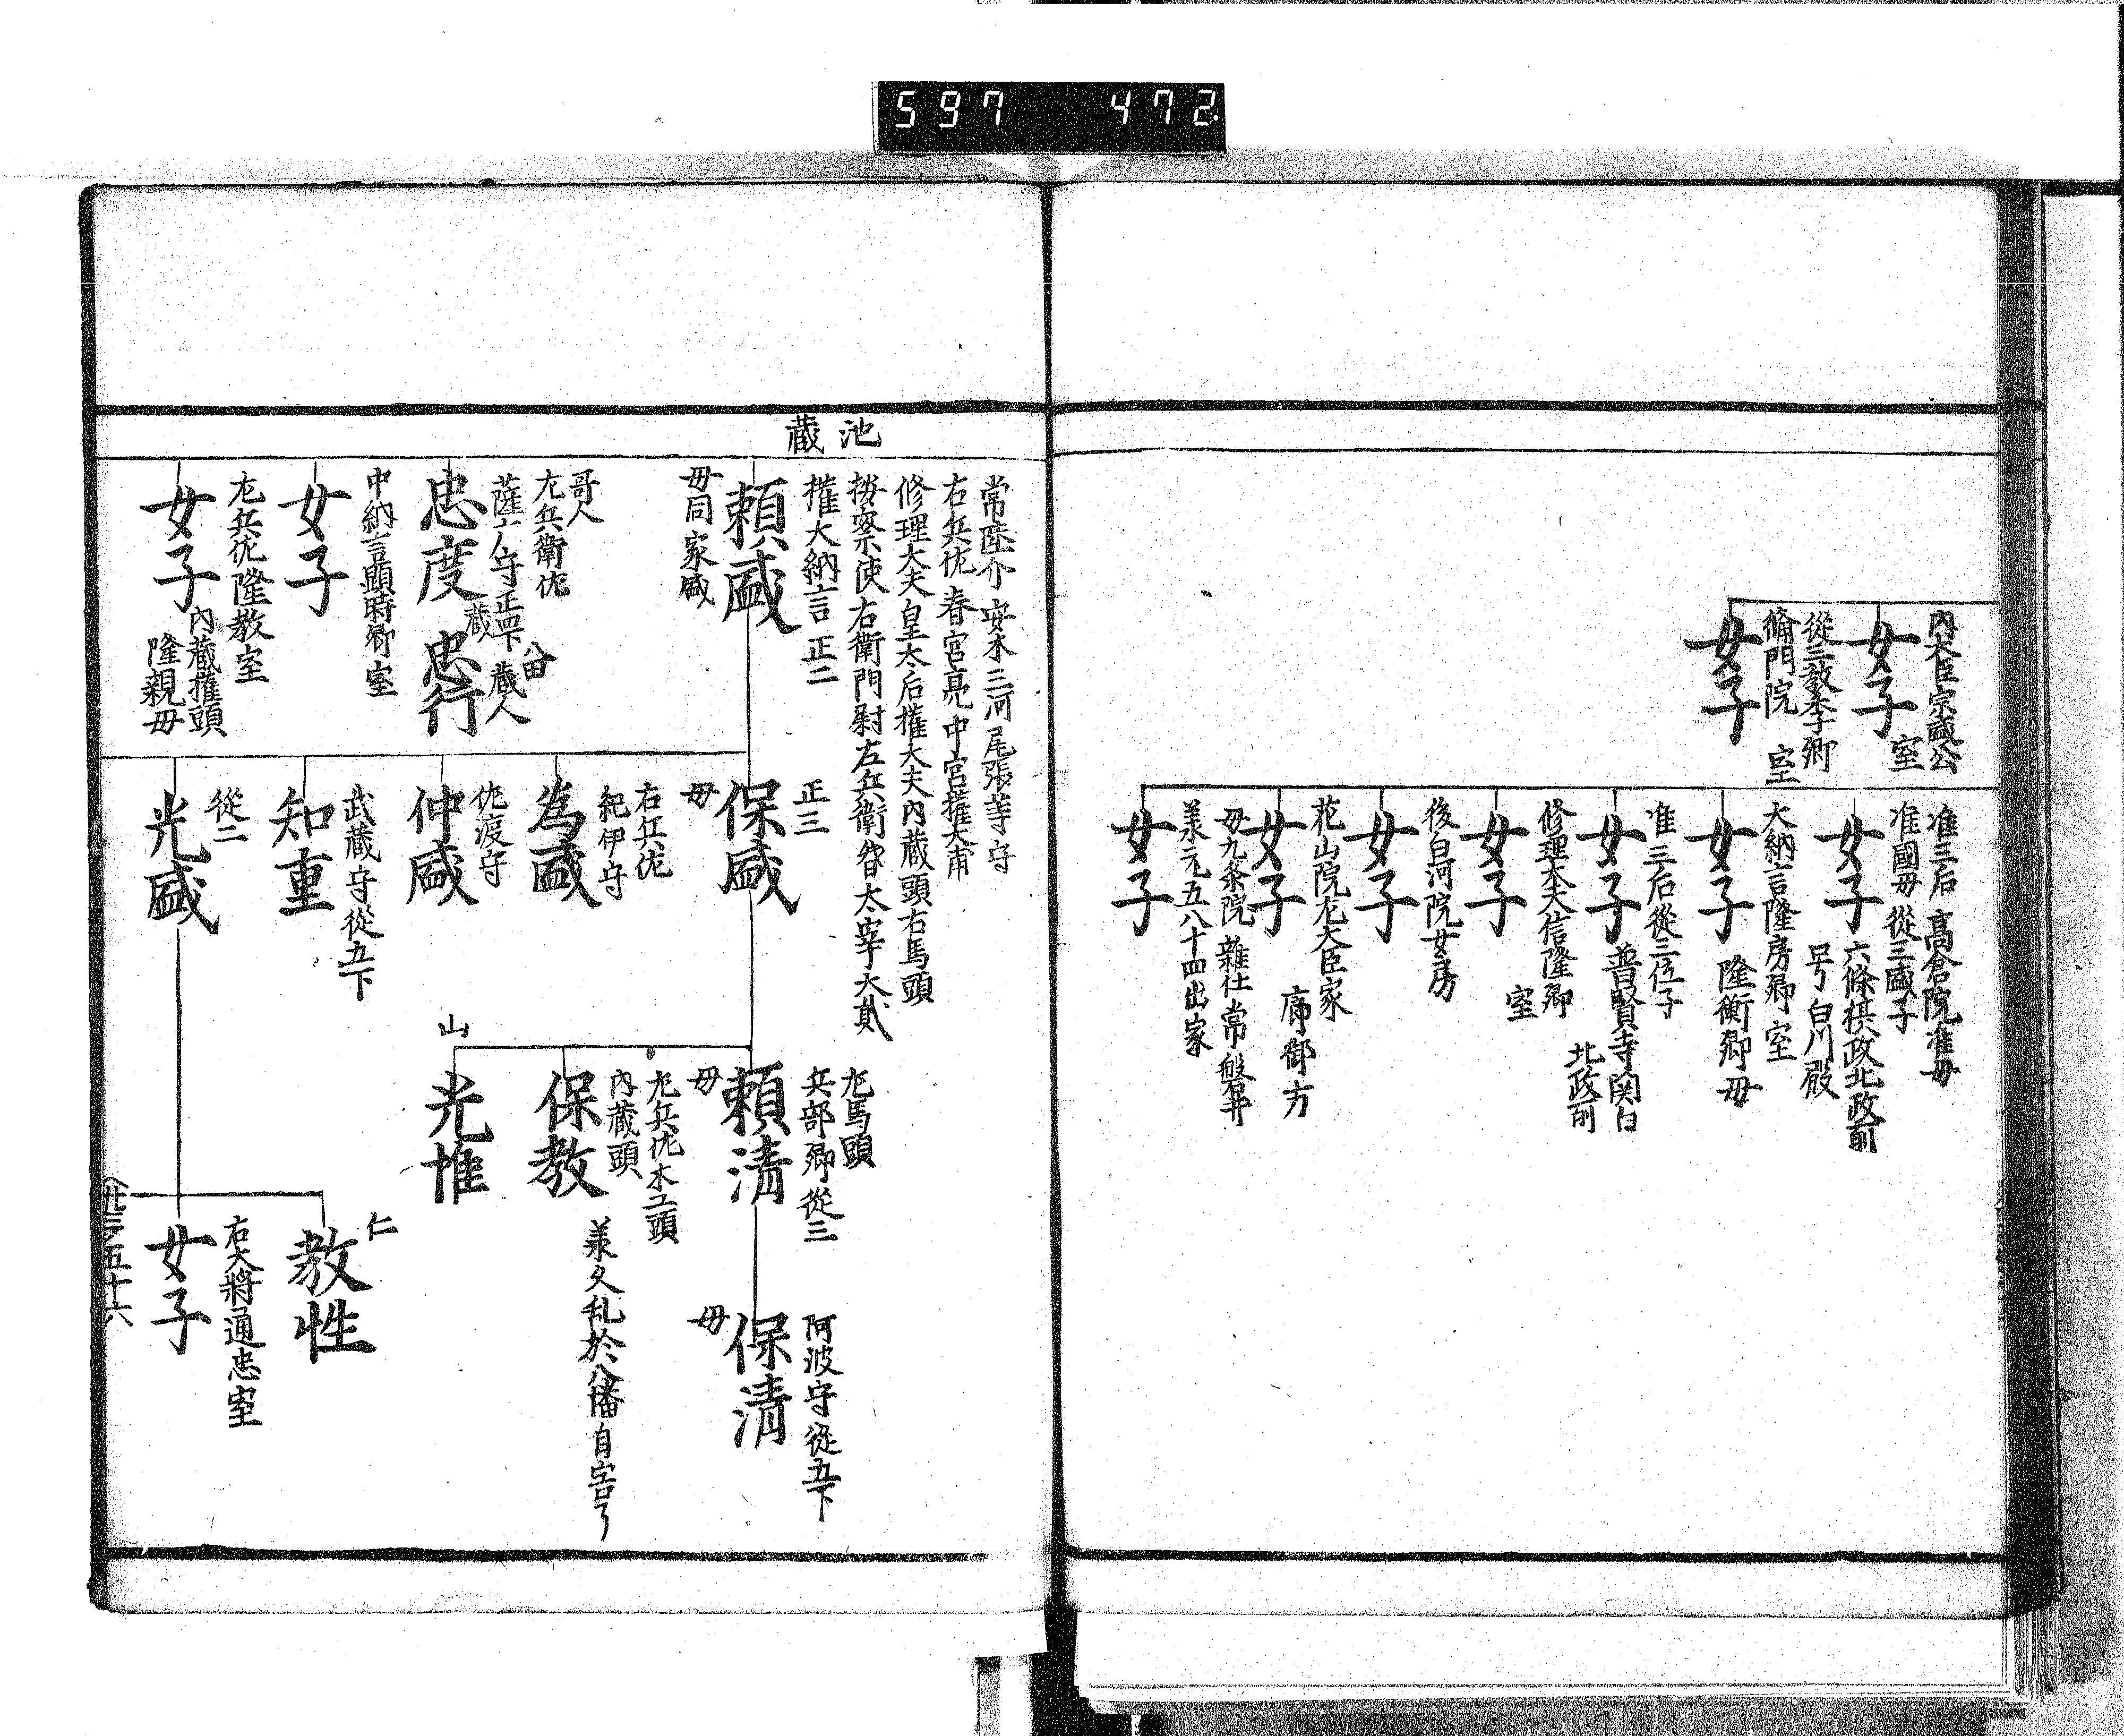 597 472
内大臣宗盛公
室
女子
從三教季卿
脩門院 室
女子
准三后 高倉院准母
准國母 從三盛子
女子
六條摂政北政所
号白川殿
大納言隆房卿室
女子
隆衡卿母
准三后從三位子
女子
普賢寺関白
北政所
修理大夫信隆卿
室
女子
後白河院女房
女子
花山院左大臣家
廊御方
女子
母九条院雜仕常盤
美元五八十四出家
女子
池
蔵
常陸介安木三河尾張等守
右兵佐春宮亮中宮権大甫
修理大夫皇太后権大夫内蔵頭右馬頭
按察使右衛門尉左兵衛督太宰大貳
権大納言 正二
頼盛
母同家盛
哥人
左兵衛佐
薩广守正四下
蔵人
忠度
蔵
忠行
中納言顕時卿室
女子
左兵佐隆教室
女子
内蔵権頭
隆親母
正三
保盛
母
右兵佐
紀伊守
為盛
佐渡守
仲盛
武蔵守從五下
知重
從二
光盛
左馬頭
兵部卿從三
頼清
母
左兵佐木工頭
内蔵頭
保教
美久乱於八幡自害了
山
光惟
阿波守從五下
保清
母
仁
教性
右大将通忠室
女子
五十六